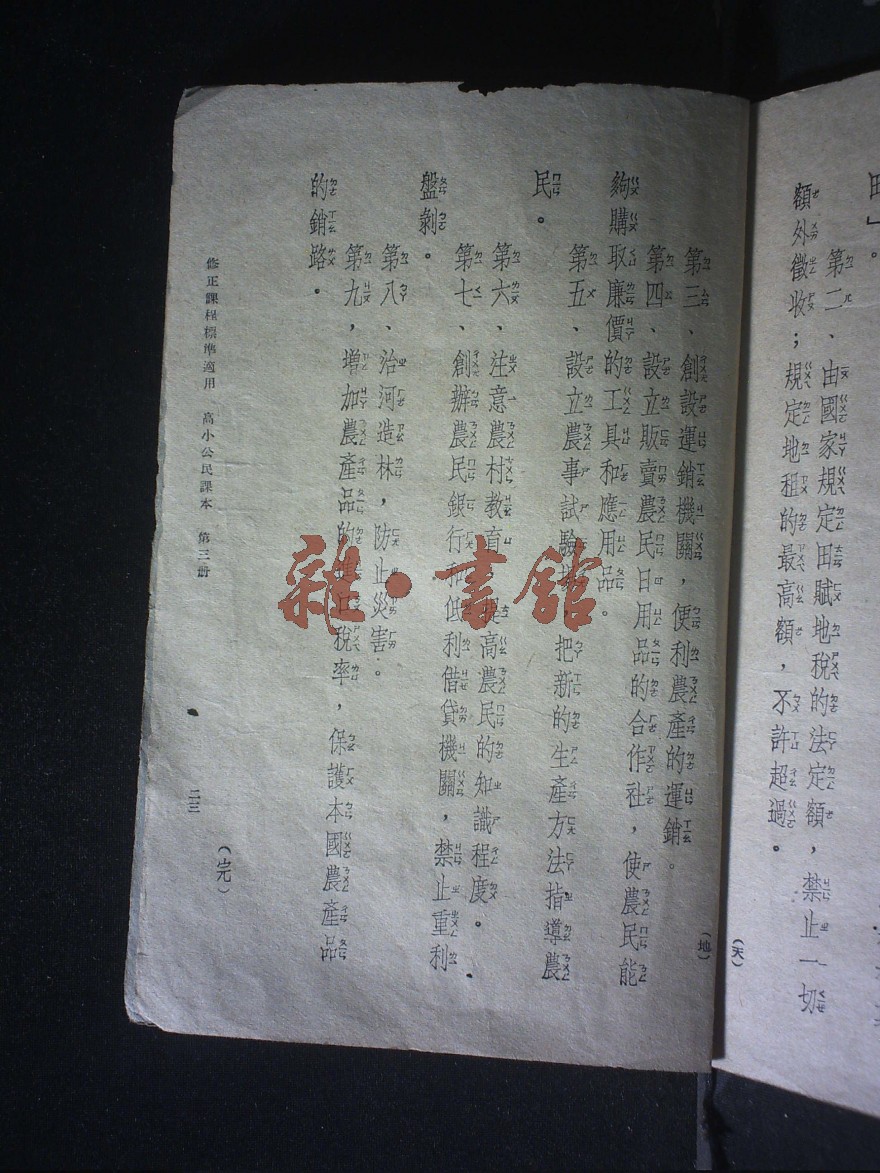 田」。
第二、由國家規定田賦地稅的法定額，禁止一切
額外徵收；規定地租的最高額，不許超過。
(天)
(地)
第三、創設運銷機關，便利農產的運銷。
第四、設立販賣農民日用品的合作社，使農民能
夠購取廉價的工具和應用品。
第五、設立農事試驗，把新的生產方法指導農
民。
第六、注意農村教育，提高農民的知識程度。
第七、創辦農民銀行和低利借貸機關，禁止重利
盤剝。
第八、治河造林，防止災害。
第九，增加農產品的進口稅率，保護本國農產品
的銷路。
修正課程標準適用 高小公民課本 第三册
二三
(完)
雜·書館